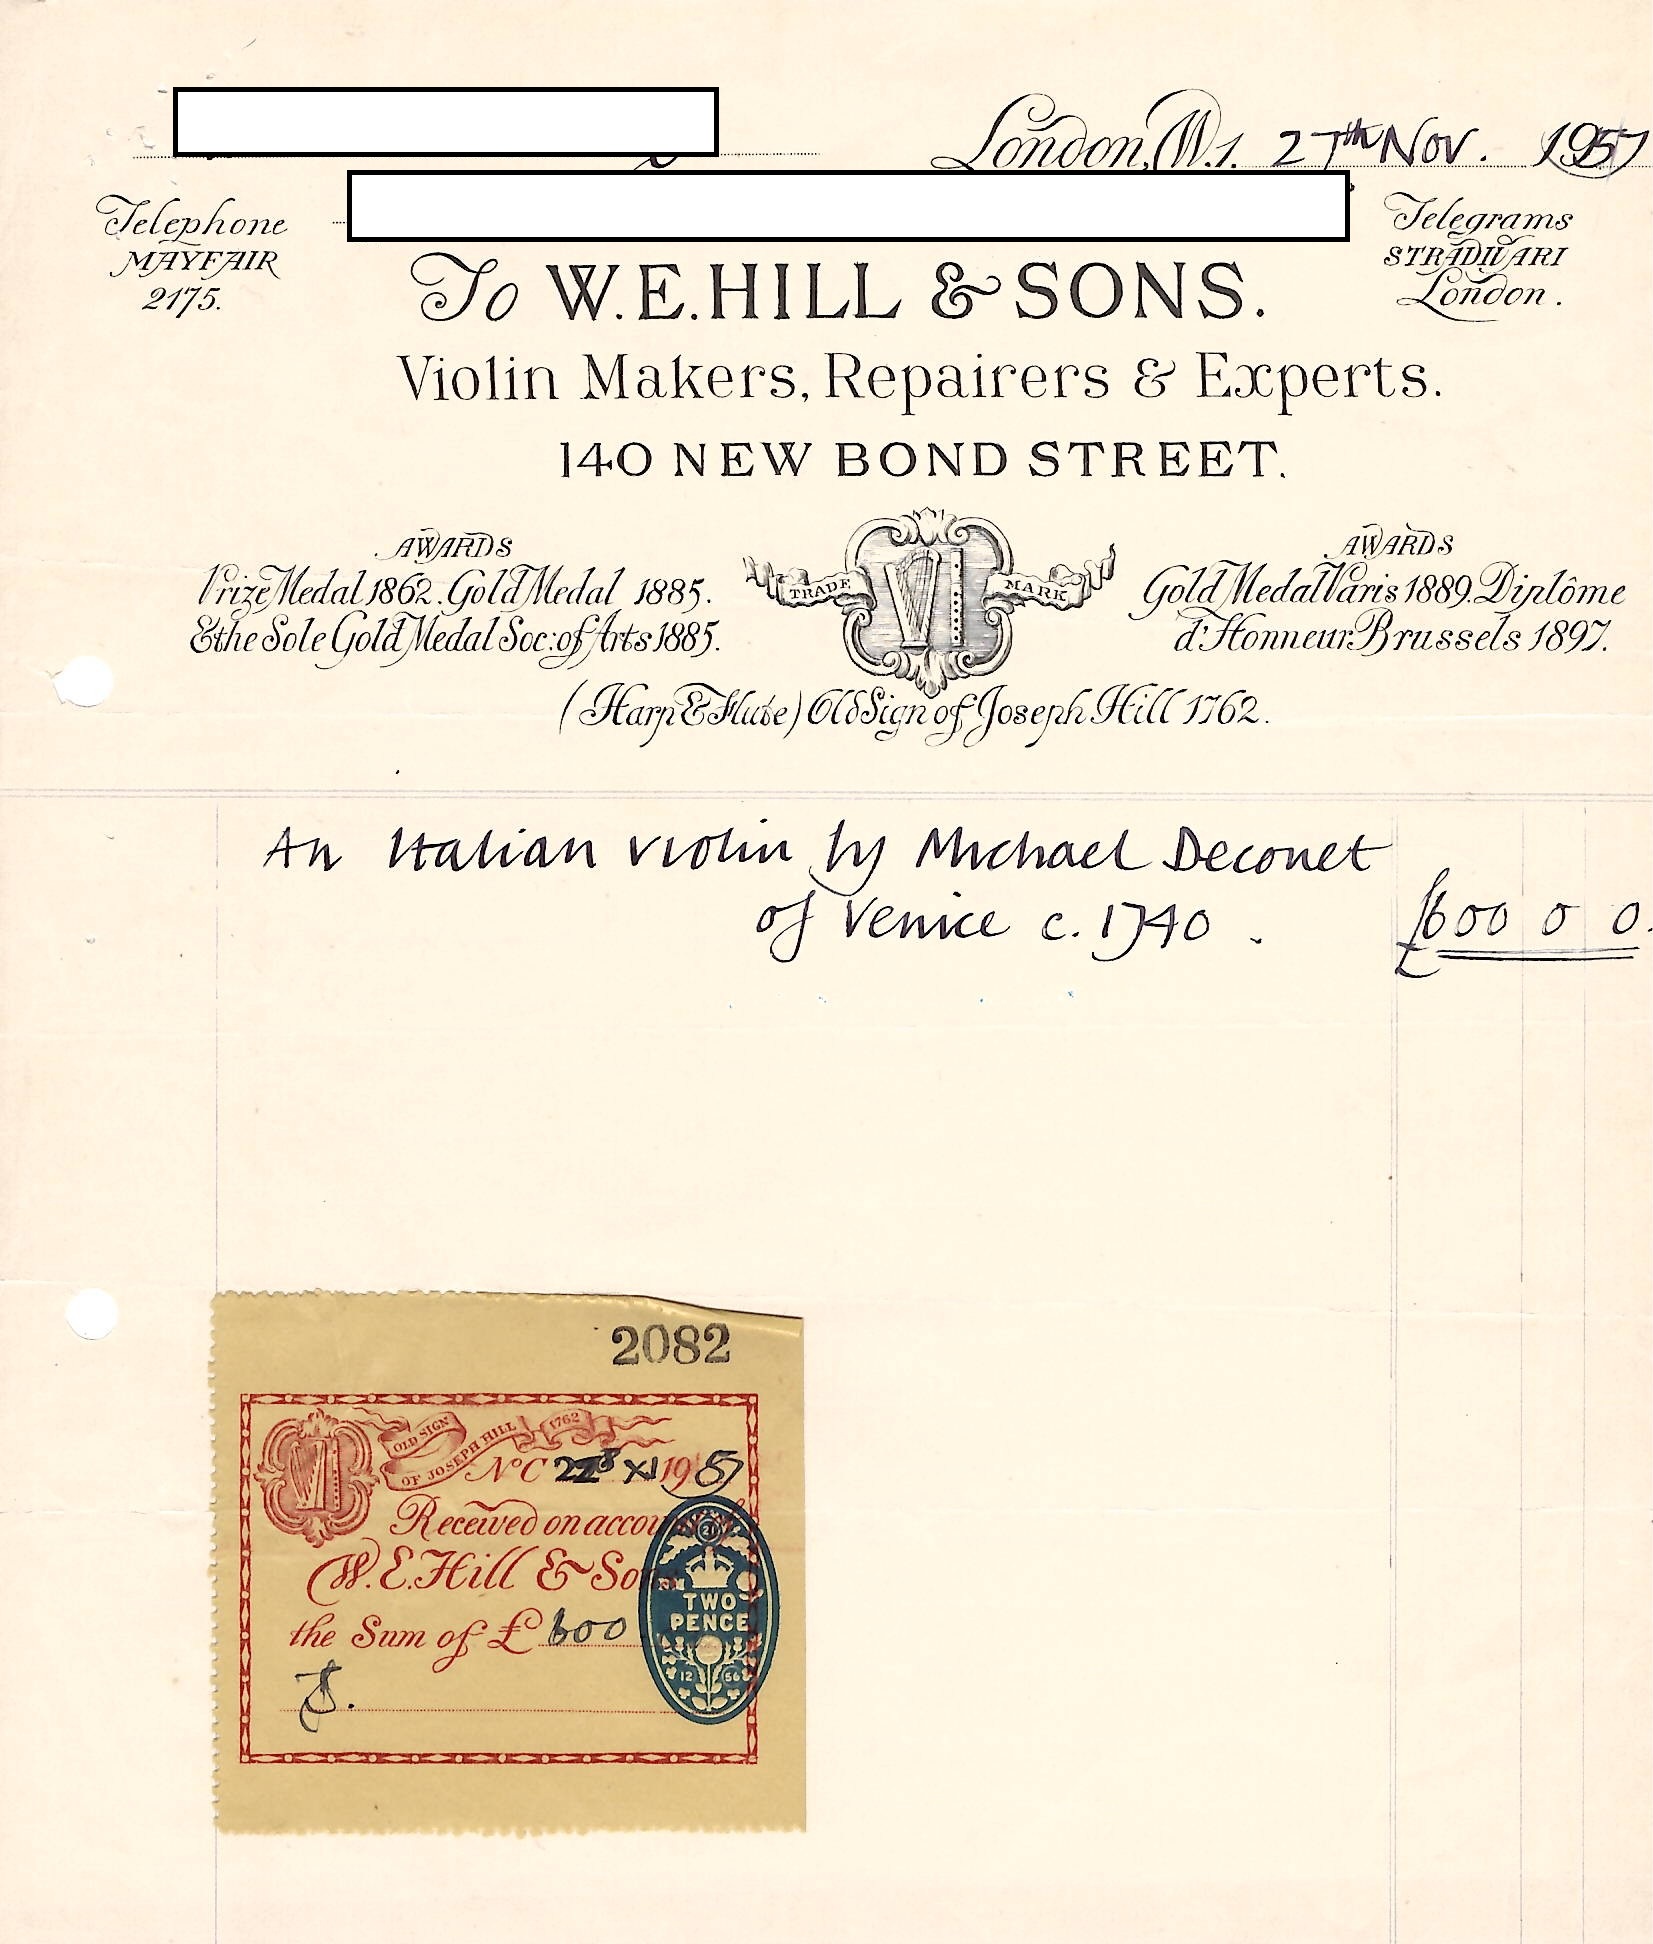 London, W.1. 27th Nov. 1957
Telephone
MAYFAIR
2175.
Telegrams
STRADIVARI
London.
To W. E. HILL & SONS.
Violin Makers, Repairers & Experts.
140 NEW BOND STREET.
AWARDS
Prize Medal 1862. Gold Medal 1885.
& the Sole Gold Medal Soc: of Arts 1885.
TRADE MARK
AWARDS
Gold Medal Paris 1889. Diplôme
d'Honneur Brussels 1897.
(Harp & Flute) Old Sign of Joseph Hill 1762.
An Italian violin by Michael Deconet
of Venice c. 1740. £600 0 0.
£
2082
OLD SIGN
OF JOSEPH HILL 1762
No C XI 1957
Received on account of
W. E. Hill & Sons
the Sum of £ 600
21
TWO
PENCE
12 56